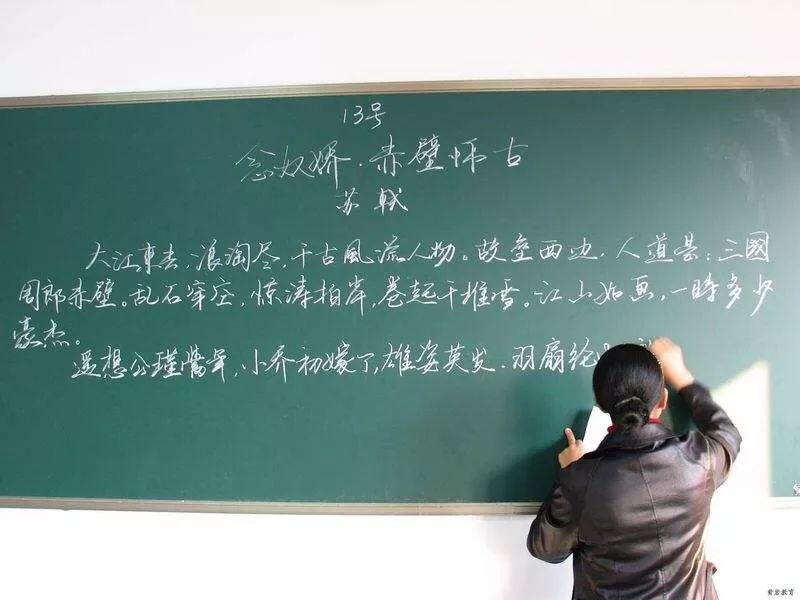 13号
念奴娇·赤壁怀古
苏轼
大江東去,浪淘尽,千古風流人物。故垒西边,人道是:三國
周郎赤壁。乱石穿空,惊涛拍岸,卷起千堆雪。江山如画,一時多少
豪杰。
遥想公瑾當年,小乔初嫁了,雄姿英发.羽扇纶
黄岩教育